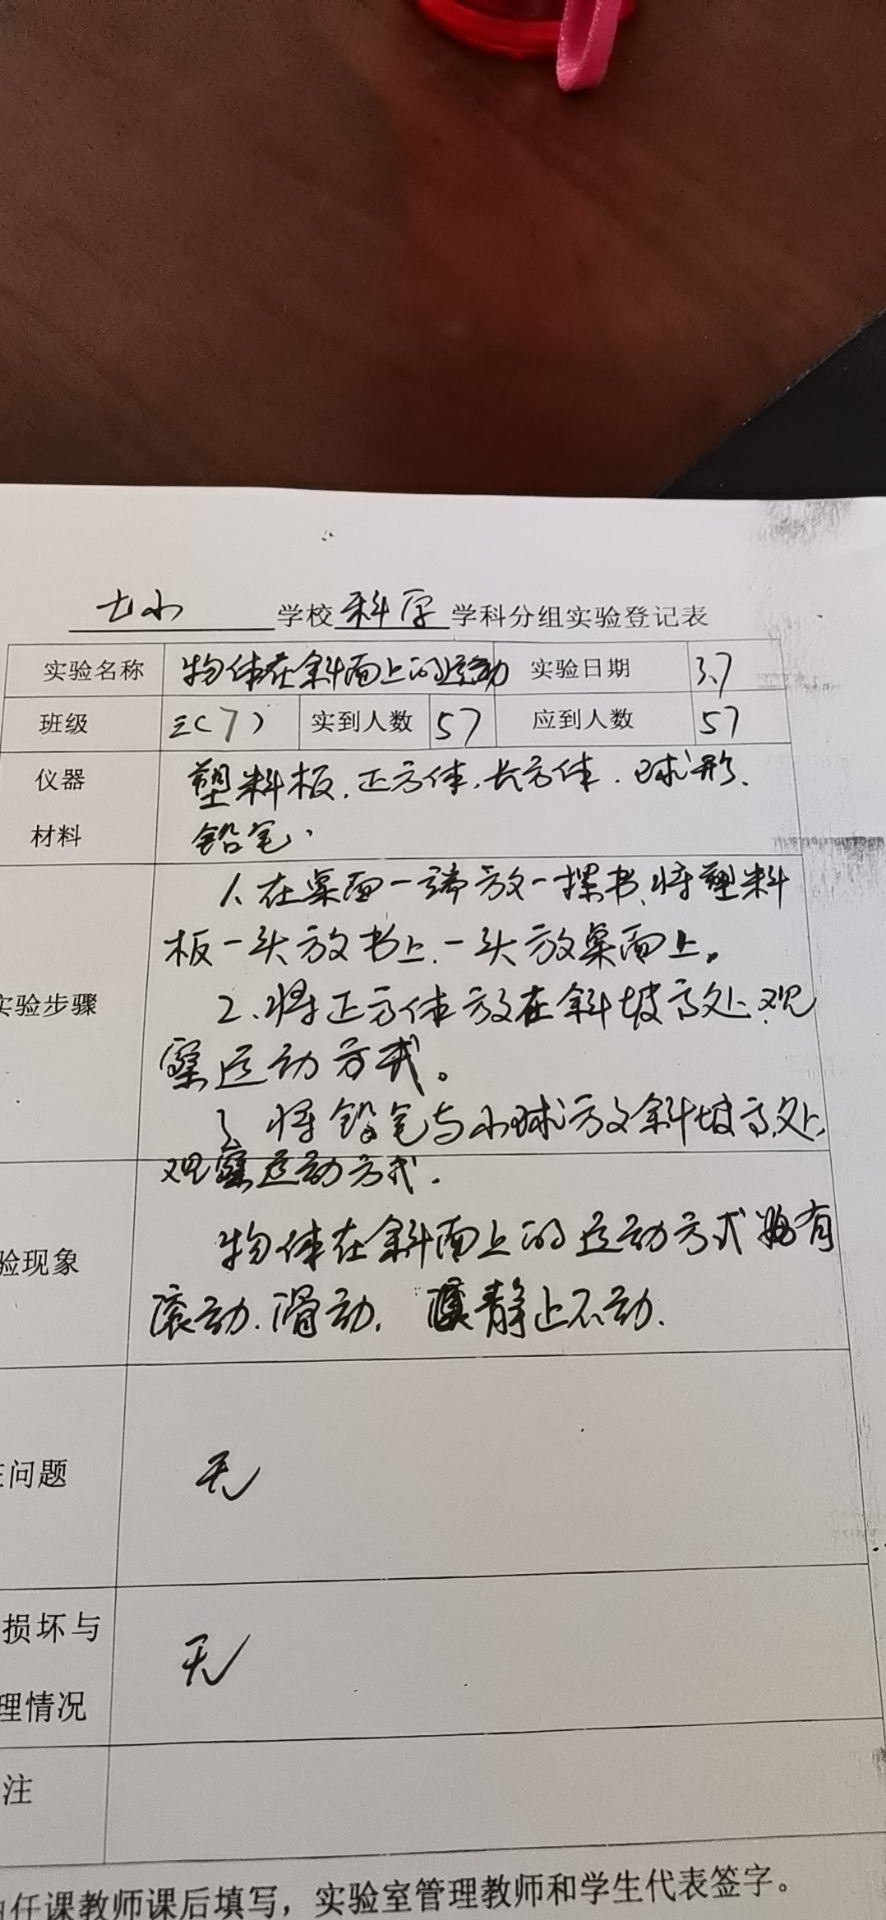 七小 学校 科学 学科分组实验登记表
实验名称 物体在斜面上的运动 实验日期 3.7
班级 三(7) 实到人数 57 应到人数 57
仪器 塑料板、正方体、长方体、球形、
材料 铅笔.
1、在桌面一端放一摞书,将塑料
板一头放书上,一头放桌面上。
实验步骤 2、将正方体放在斜坡高处,观
察运动方式。
3 将铅笔与小球放斜坡高处,
观察运动方式.
物体在斜面上的运动方式 有
验现象
滚动、滑动, 静止不动.
问题 无
损坏与
无
理情况
注
任课教师课后填写,实验室管理教师和学生代表签字。